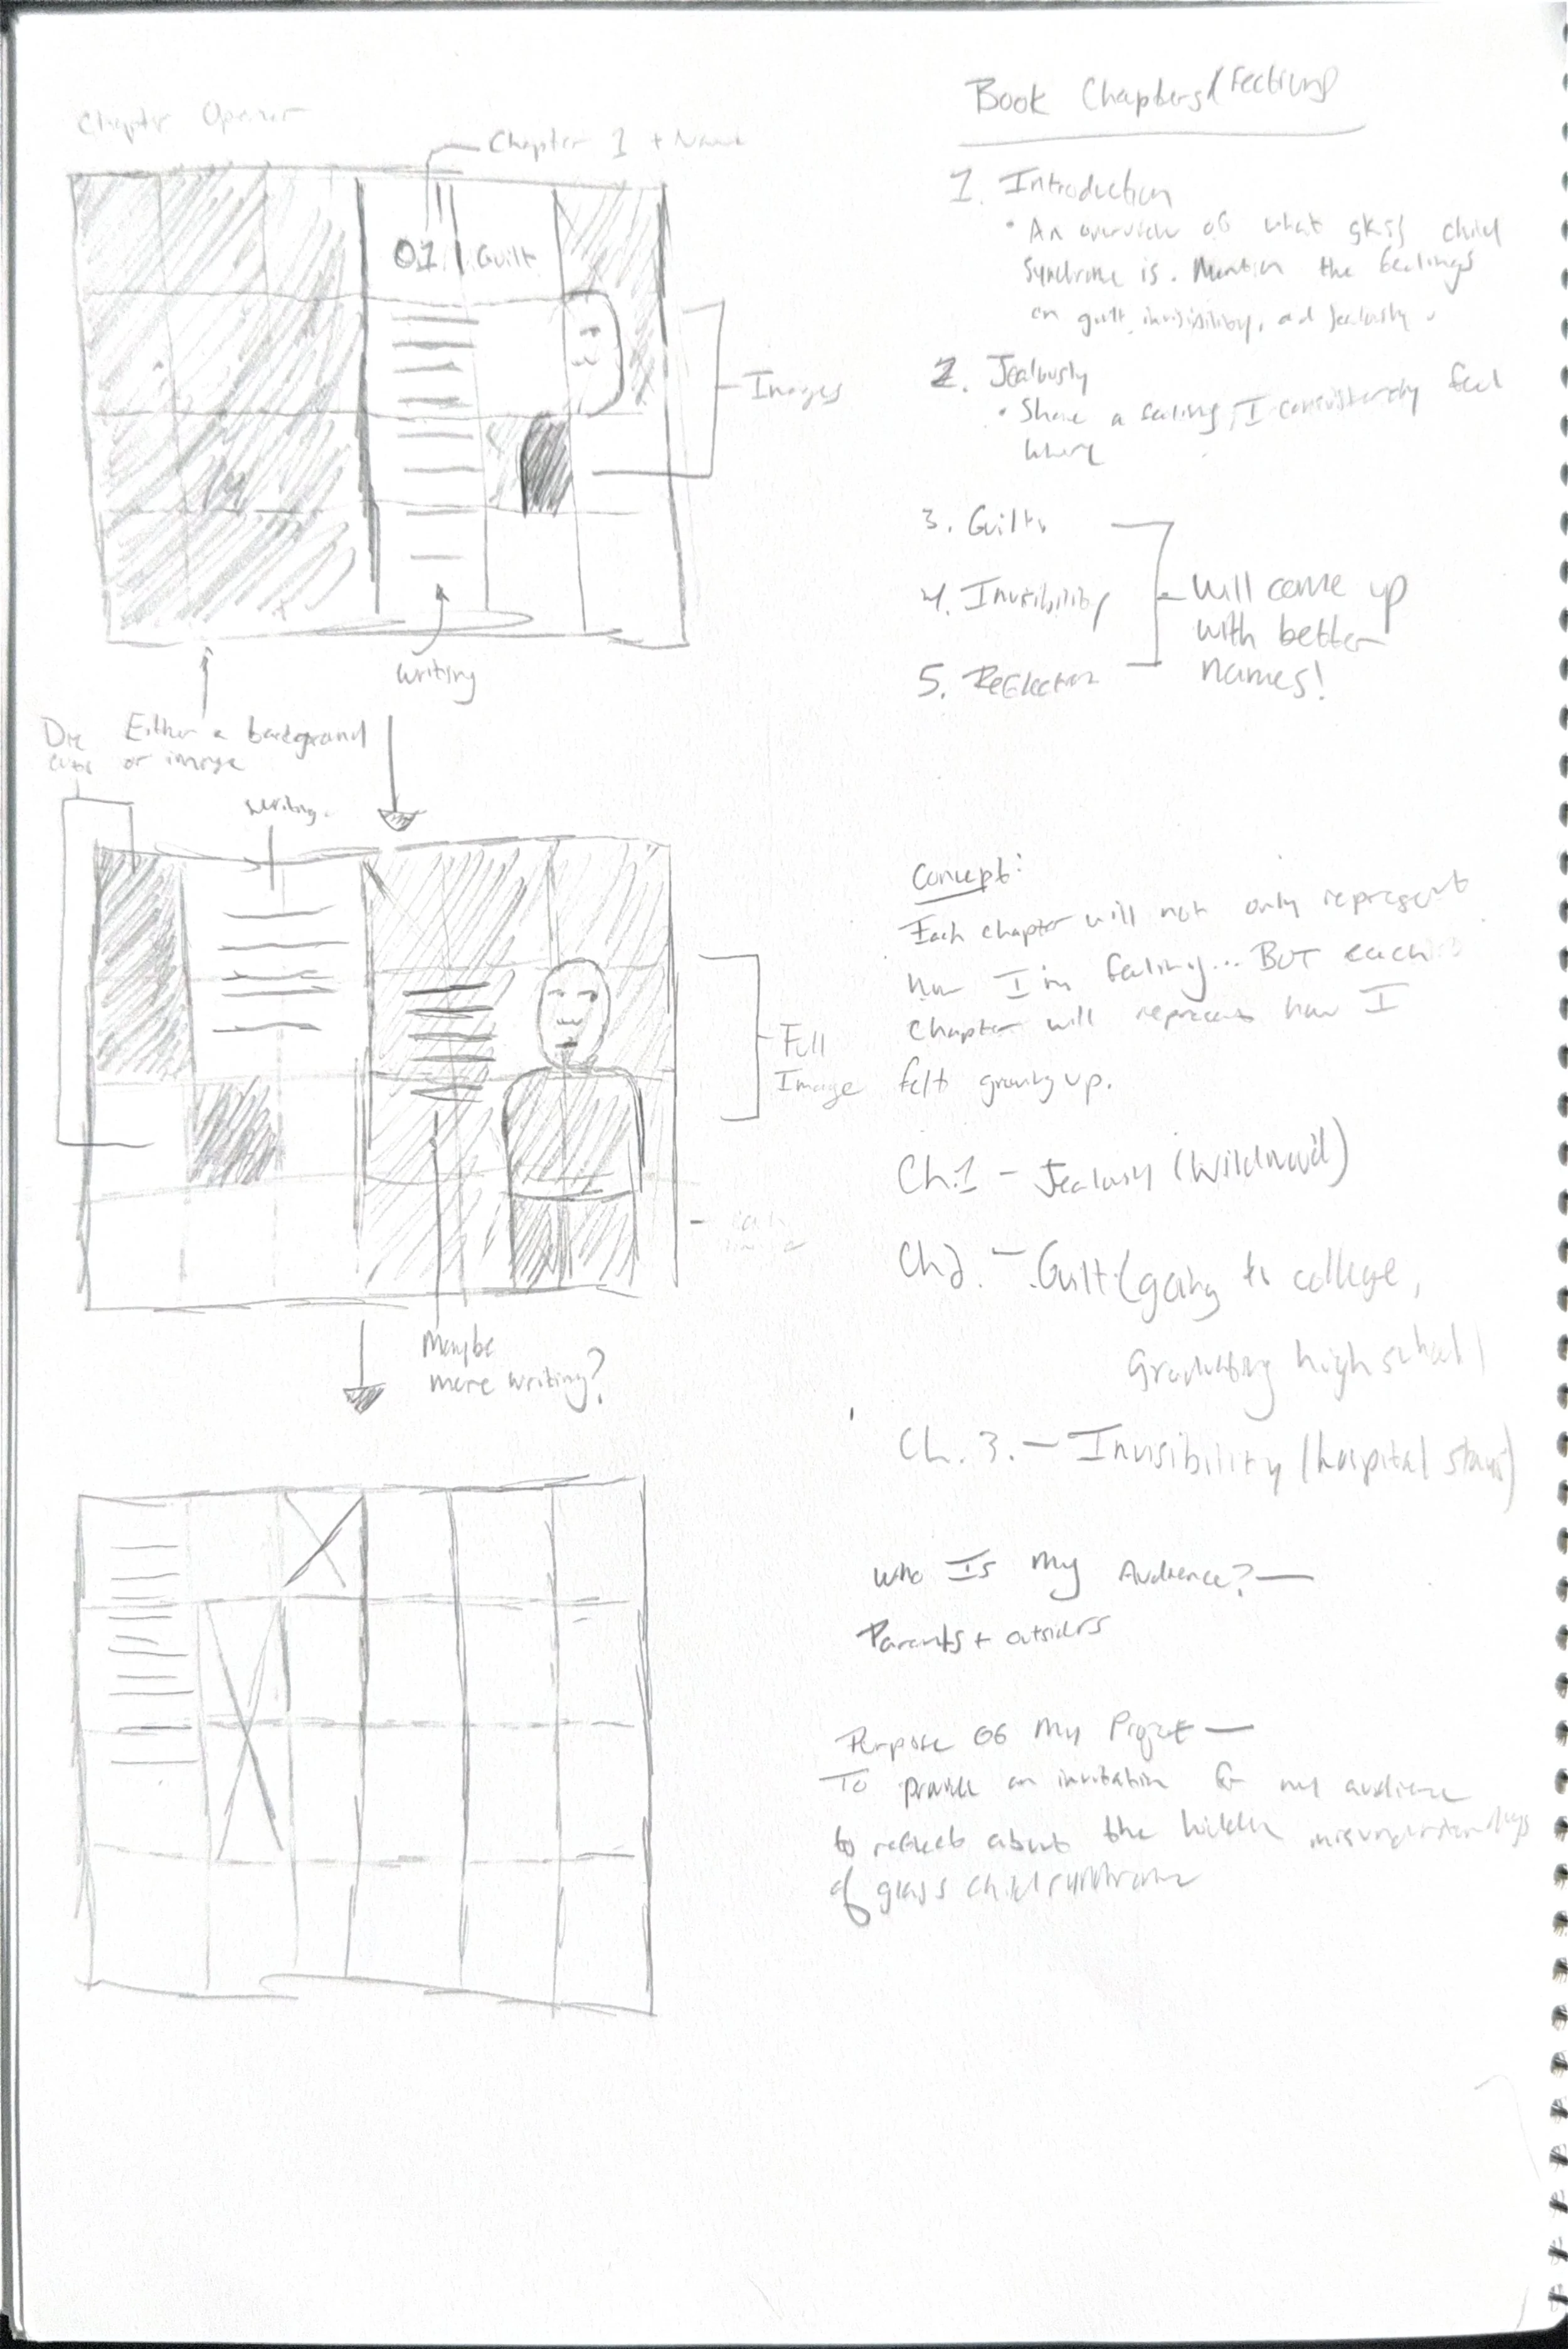 Chapter Opener
Chapter 1 + Name
01 | Guilt
Images
writing
Die
cuts
Either a background
or image
writing.
Full
Image
Maybe
more writing?
Book Chapters/Sections
1. Introduction
• An overview of what glass child
syndrome is. Mention the feelings
on guilt, invisibility, and jealously
2. Jealously
• Share a feeling, I consistently feel
where
3. Guilt
4. Invisibility
5. Reflection
will come up
with better
names!
Concept:
Each chapter will not only represent
how I'm feeling... BUT each
chapter will represent how I
felt growing up.
Ch.1 - Jealousy (Wildwood)
Ch2. - Guilt (going to college,
Graduating high school)
Ch. 3. - Invisibility (hospital stays)
Who Is My Audience? —
Parents + outsiders
Purpose of My Project —
To provide an invitation for my audience
to reflect about the hidden misunderstandings
of glass child syndrome